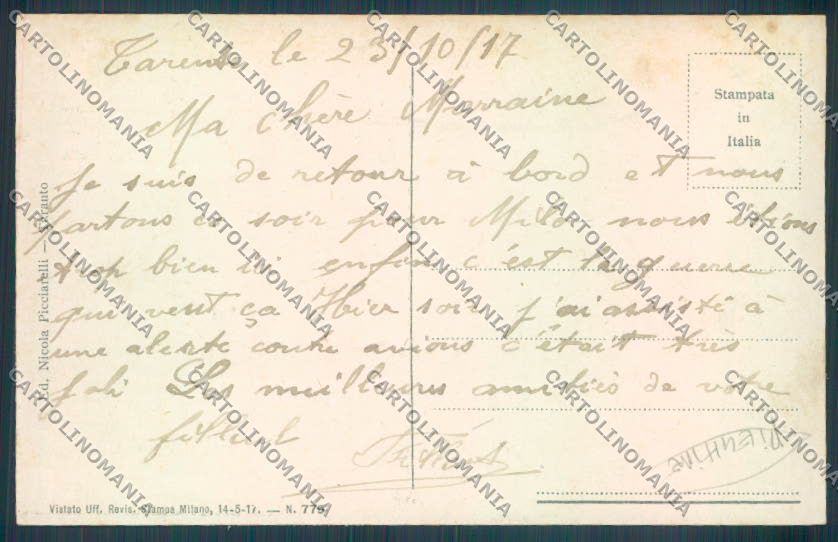 Tarente le 23/10/17
Ma chère Marraine
Je suis de retour à bord et nous
partons ce soir pour Milo nous étions
trop bien ici enfin c'est la guerre
qui veut ça Hier soir j'ai assisté à
une alerte contre avions c'était très
joli Les meilleures amitiés de votre
filleul
Stampata
in
Italia
Ed. Nicola Picciarelli - Taranto
Vistato Uff. Revis. Stampa Milano, 14-5-17. — N. 779
CARTOLINOMANIA